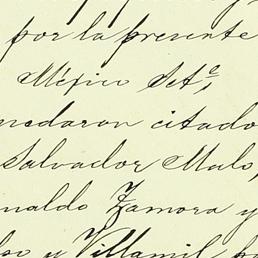 por la presente
Méjico Set.e,
quedaron citado
Salvador Malo,
naldo Zamora y
y Villamil, p